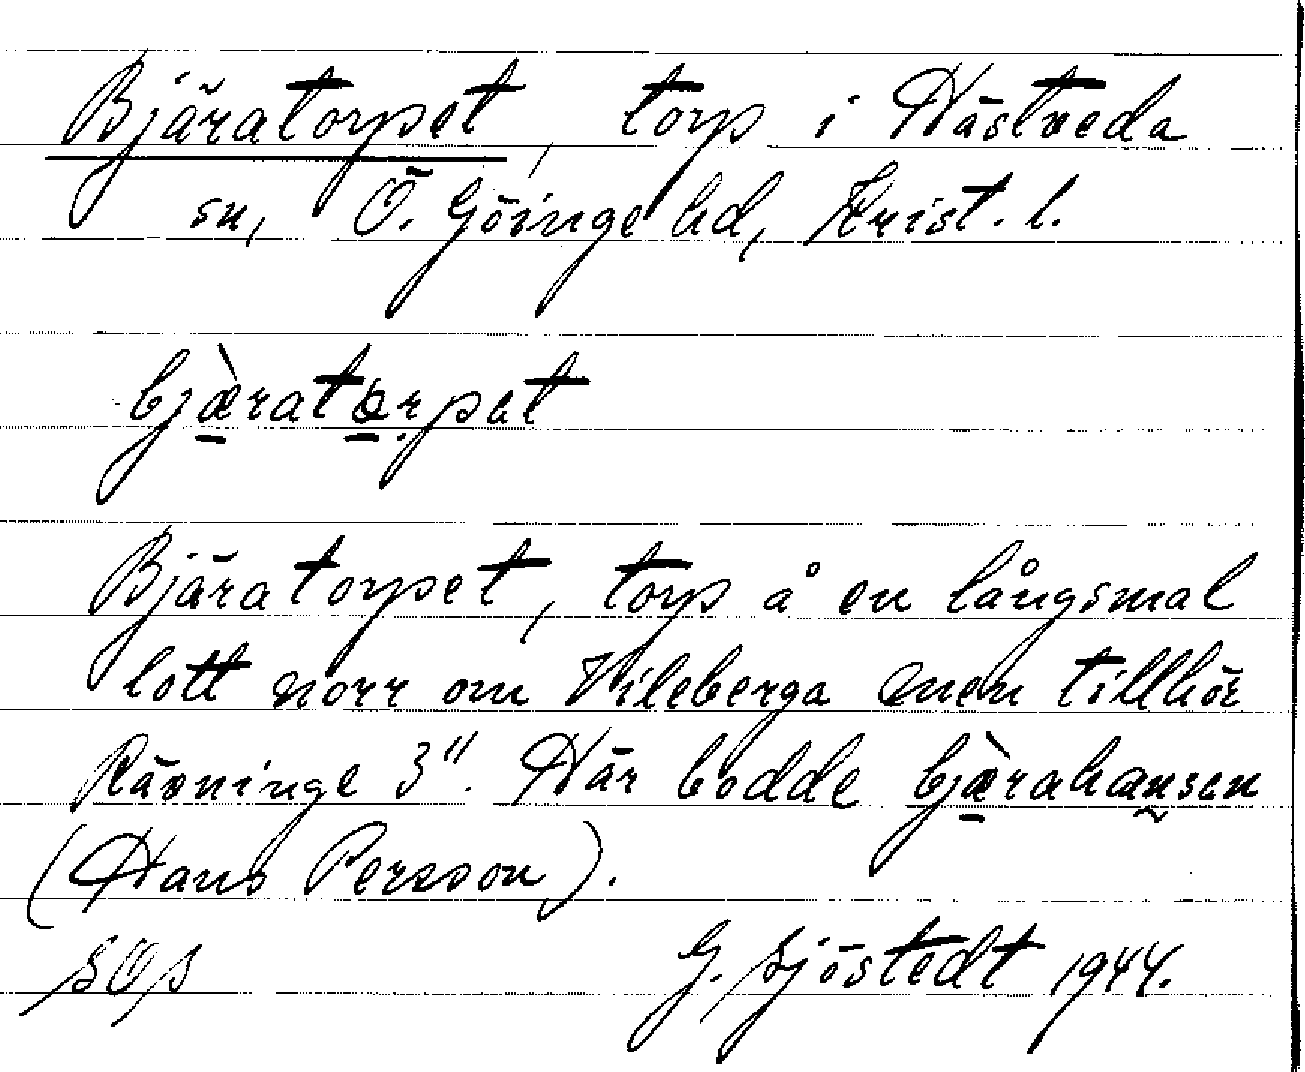 Bjäratorpet, torp i Hästveda
sn, Ö. Göinge hd, Krist. l.
bjæ̀ratɵrpet
Bjäratorpet, torp å en långsmal
lott norr om Vileberga men tillhör
Rävninge 3". Här bodde bjæ̀rahansen
(Hans Persson).
G. Sjöstedt 1944.